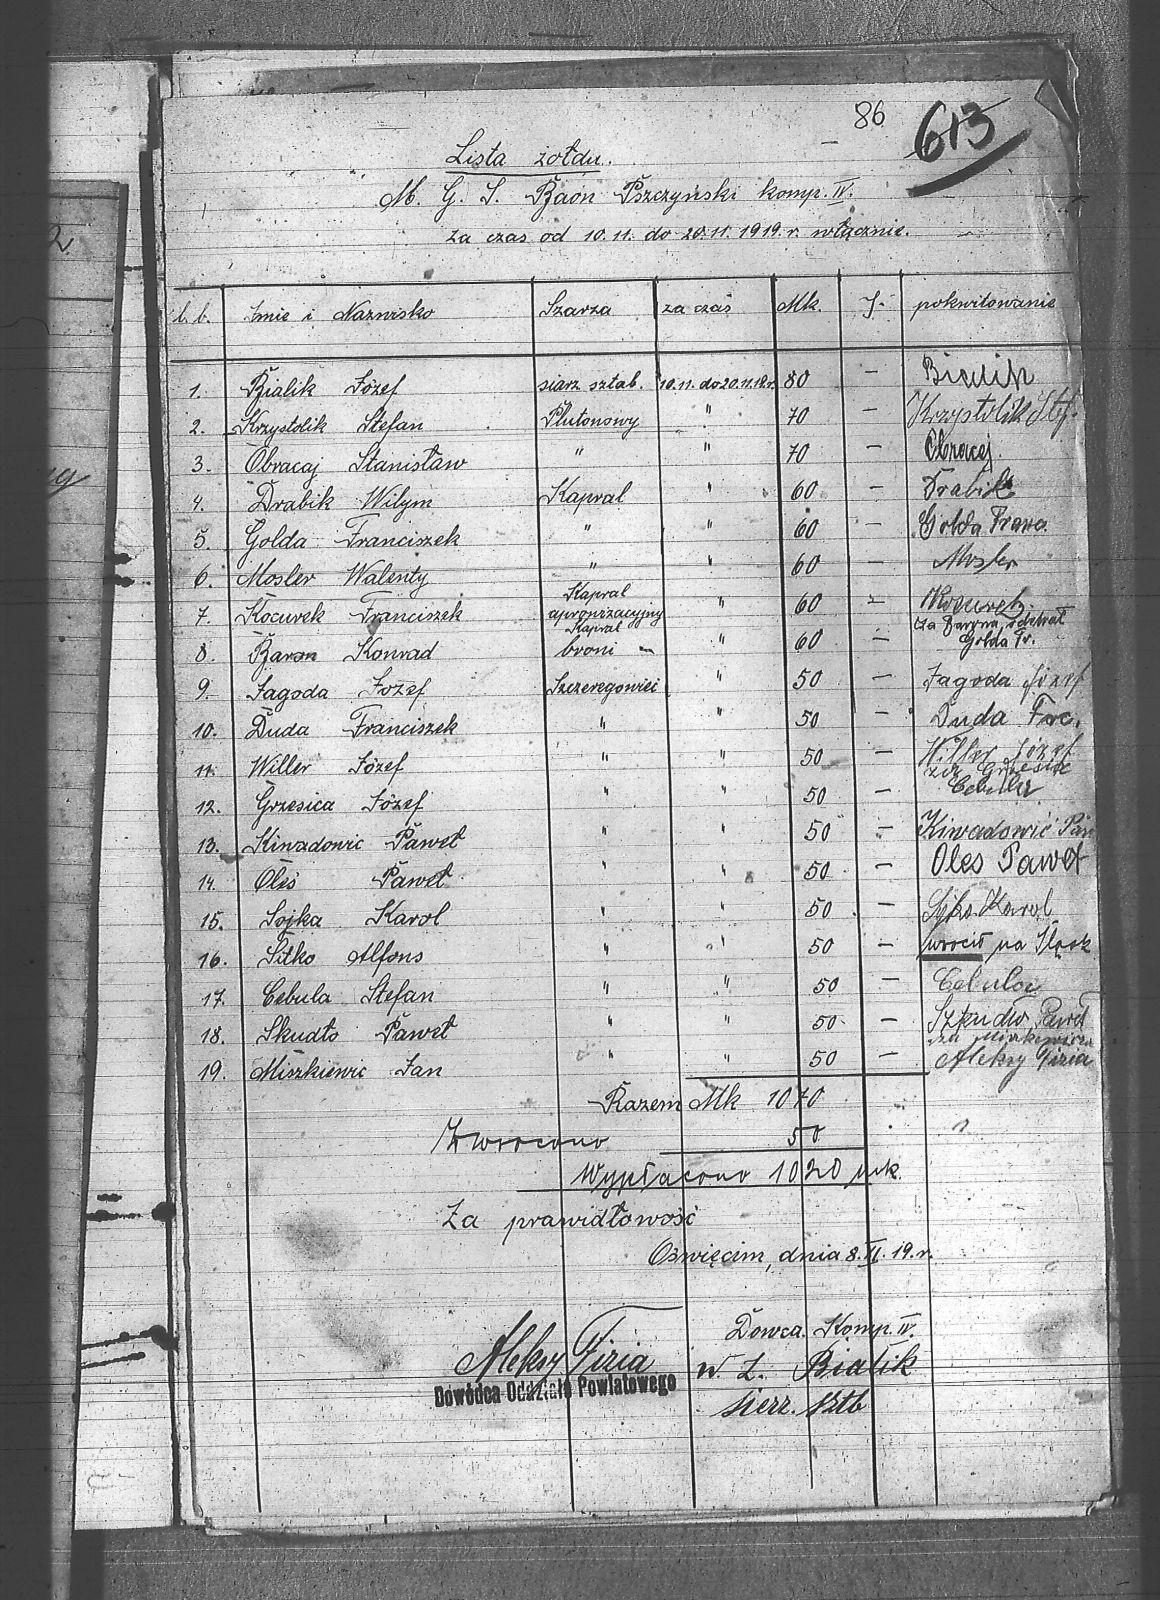 86 613
Lista żołdu.
M. G. S. Baon Pszczyński komp. IV.
za czas od 10.11. do 20.11.1919.r. włącznie.
l. b. Imie i Nazwisko Szarza za czas Mk. f. pokwitowanie
1. Bialik Józef siarz. sztab. 10.11. do 20.11.19.r. 80 — Bialik
2. Krzystolik Stefan Plutonowy " 70 — Krzystolik Stef.
3. Obracaj Stanisław " " 70 — Obracaj.
4. Drabik Wilym Kapral " 60 — Drabik
5. Golda Franciszek " " 60 — Golda Franc.
6. Mosler Walenty " " 60 — Mosler
7. Kocurek Franciszek Kapral aprowizacyjny " 60 — Kocurek.
8. Baron Konrad Kapral broni " 60 — za Barona odebrał Golda Fr.
9. Jagoda Józef Szczeregowiec " 50 — Jagoda Józef
10. Duda Franciszek " " 50 — Duda Frc.
11. Willer Józef " " 50 — Willer Józef
12. Grzesica Józef " " 50 — za Grzesica Cebula
13. Kiwadowic Paweł " " 50 — Kiwadowić Paw
14. Oleś Paweł " " 50 — Oles Paweł
15. Sojka Karol " " 50 — Karol
16. Sitko Alfons " " 50 — wrocił na Śląsk
17. Cebula Stefan " " 50 — Cebula
18. Skudło Paweł " " 50 — Szkudło Paweł
19. Miszkiewic Jan " " 50 — za Mirkewicza Aleksy Fizia
Razem Mk 1070
Zwrocono 50
Wypłacono 1020 mk.
Za prawidłowość
Oświęcim, dnia 8.XI.19.r.
Dowca. Komp. IV.
Aleksy Fizia w. z. Bialik
Dowódca Oddziału Powiatowego sierz. sztb